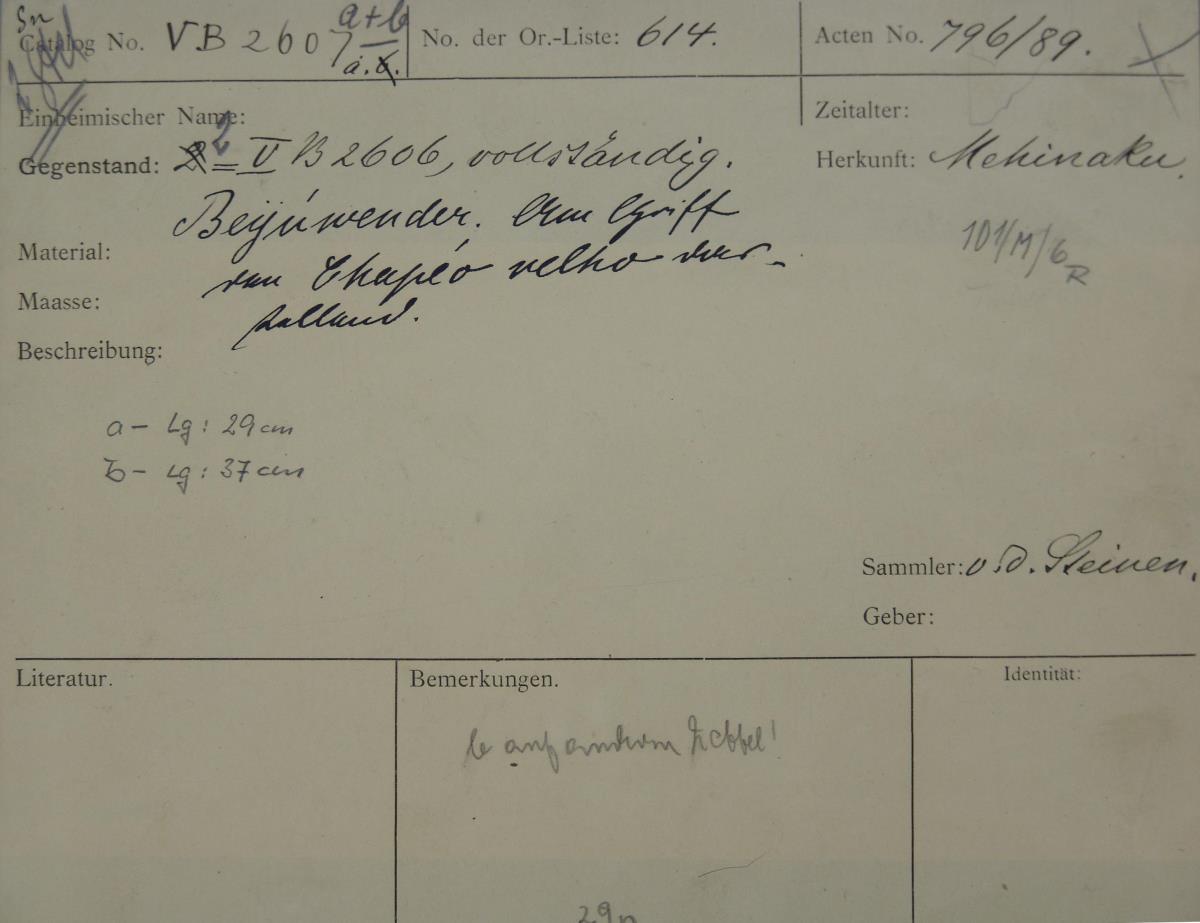 Catalog No. VB 2607 a+b
a.
No. der Or.-Liste: 614.
Acten No. 796/89.
Einheimischer Name:
Zeitalter:
Gegenstand: 2 = V B 2606, vollständig.
Herkunft: Mehinaku.
Beijúwender. Am Griff
Material:
den Chapéo velho dar-
stellend.
101/M/6
R
Maasse:
Beschreibung:
a - Lg: 29 cm
b - Lg: 37 cm
Sammler: v. d. Steinen.
Geber:
Literatur.
Bemerkungen.
Identität:
b auf anderem Zettel!